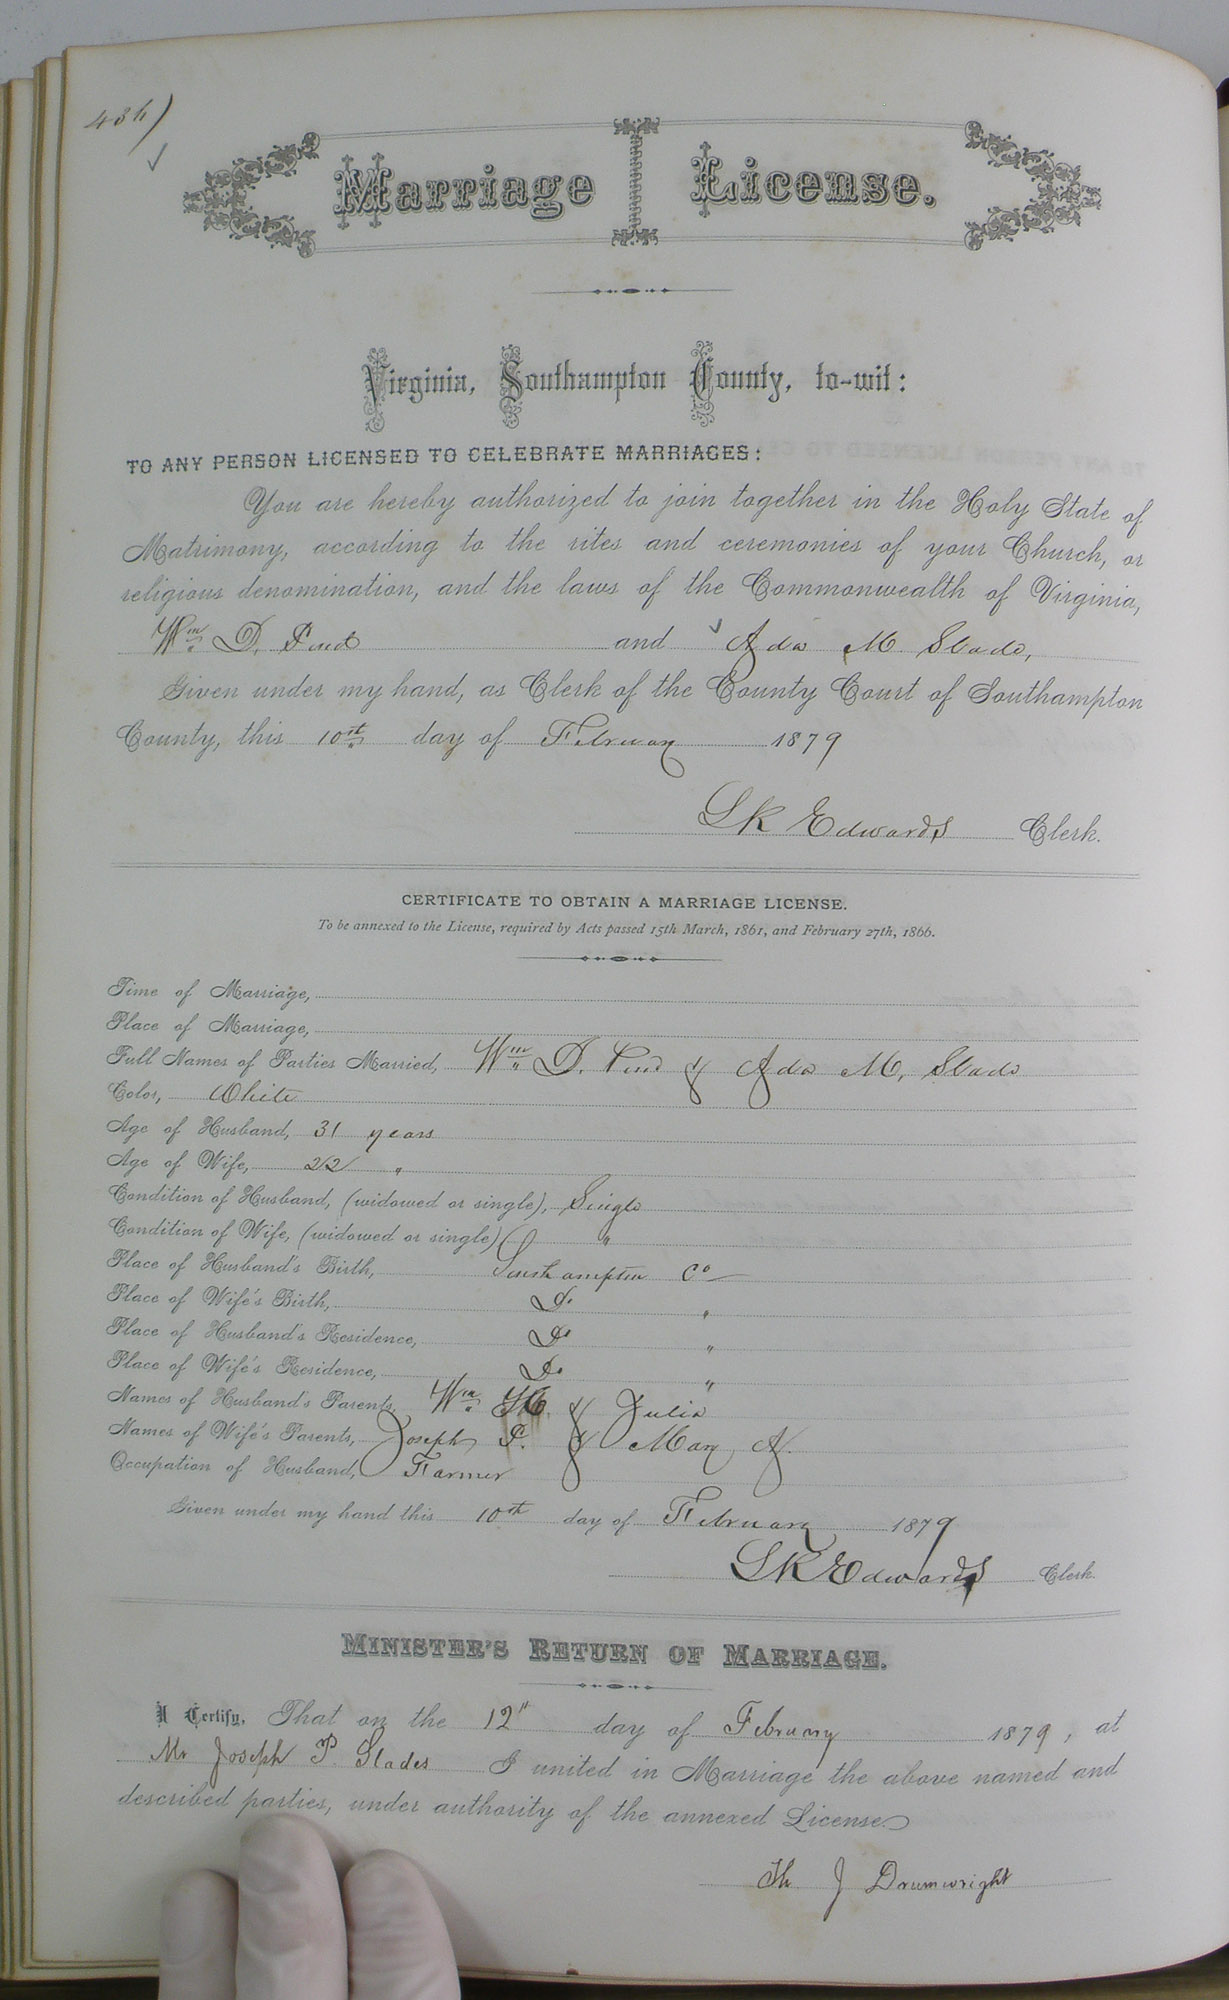 Marriage License.
Virginia, Southampton County, to-wit:
TO ANY PERSON LICENSED TO CELEBRATE MARRIAGES:
You are hereby authorized to join together in the Holy State of
Matrimony, according to the rites and ceremonies of your Church, or
religious denomination, and the laws of the Commonwealth of Virginia,
Wm D. and Ada M. Slade,
Given under my hand, as Clerk of the County Court of Southampton
County, this 10th day of February 1879
L K Edwards Clerk.
CERTIFICATE TO OBTAIN A MARRIAGE LICENSE.
To be annexed to the License, required by Acts passed 15th March, 1861, and February 27th, 1866.
Time of Marriage,
Place of Marriage,
Full Names of Parties Married, Wm D. & Ada M. Slade
Color, White
Age of Husband, 31 years
Age of Wife, 22 "
Condition of Husband, (widowed or single), Single
Condition of Wife, (widowed or single) "
Place of Husband's Birth, Southampton Co
Place of Wife's Birth, Do "
Place of Husband's Residence, Do "
Place of Wife's Residence, Do "
Names of Husband's Parents, Wm H. & Julia
Names of Wife's Parents, Joseph P. & Mary A.
Occupation of Husband, Farmer
Given under my hand this 10th day of February 1879
L K Edwards Clerk.
MINISTER'S RETURN OF MARRIAGE.
I Certify, That on the 12th day of February 1879, at
Mr Joseph P. Slades I united in Marriage the above named and
described parties, under authority of the annexed License.
Th J Drumwright